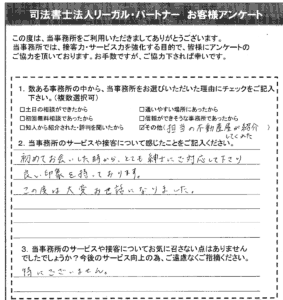 司法書士法人リーガル・パートナー お客様アンケート
この度は、当事務所をご利用いただきましてありがとうございます。
当事務所では、接客力・サービス力を強化する目的で、皆様にアンケートの
ご協力を頂いております。お手数ですが、ご協力下されば幸いです。
1. 数ある事務所の中から、当事務所をお選びいただいた理由にチェックをご記入
下さい。(複数選択可)
□土日の相談ができたから □通いやすい場所にあったから
□初回無料相談であったから □信頼ができそうな事務所であったから
□知人から紹介された・評判を聞いたから ☑その他(担当の不動産屋が紹介
してくれた)
2. 当事務所のサービスや接客について感じたことをご記入ください。
初めてお会いした時から、とても紳士にご対応して下さり
良い印象を持っております。
この度は大変お世話になりました。
3. 当事務所のサービスや接客についてお気に召さない点はありません
でしたでしょうか?今後のサービス向上の為、ご遠慮なくご指摘ください。
特にございません。